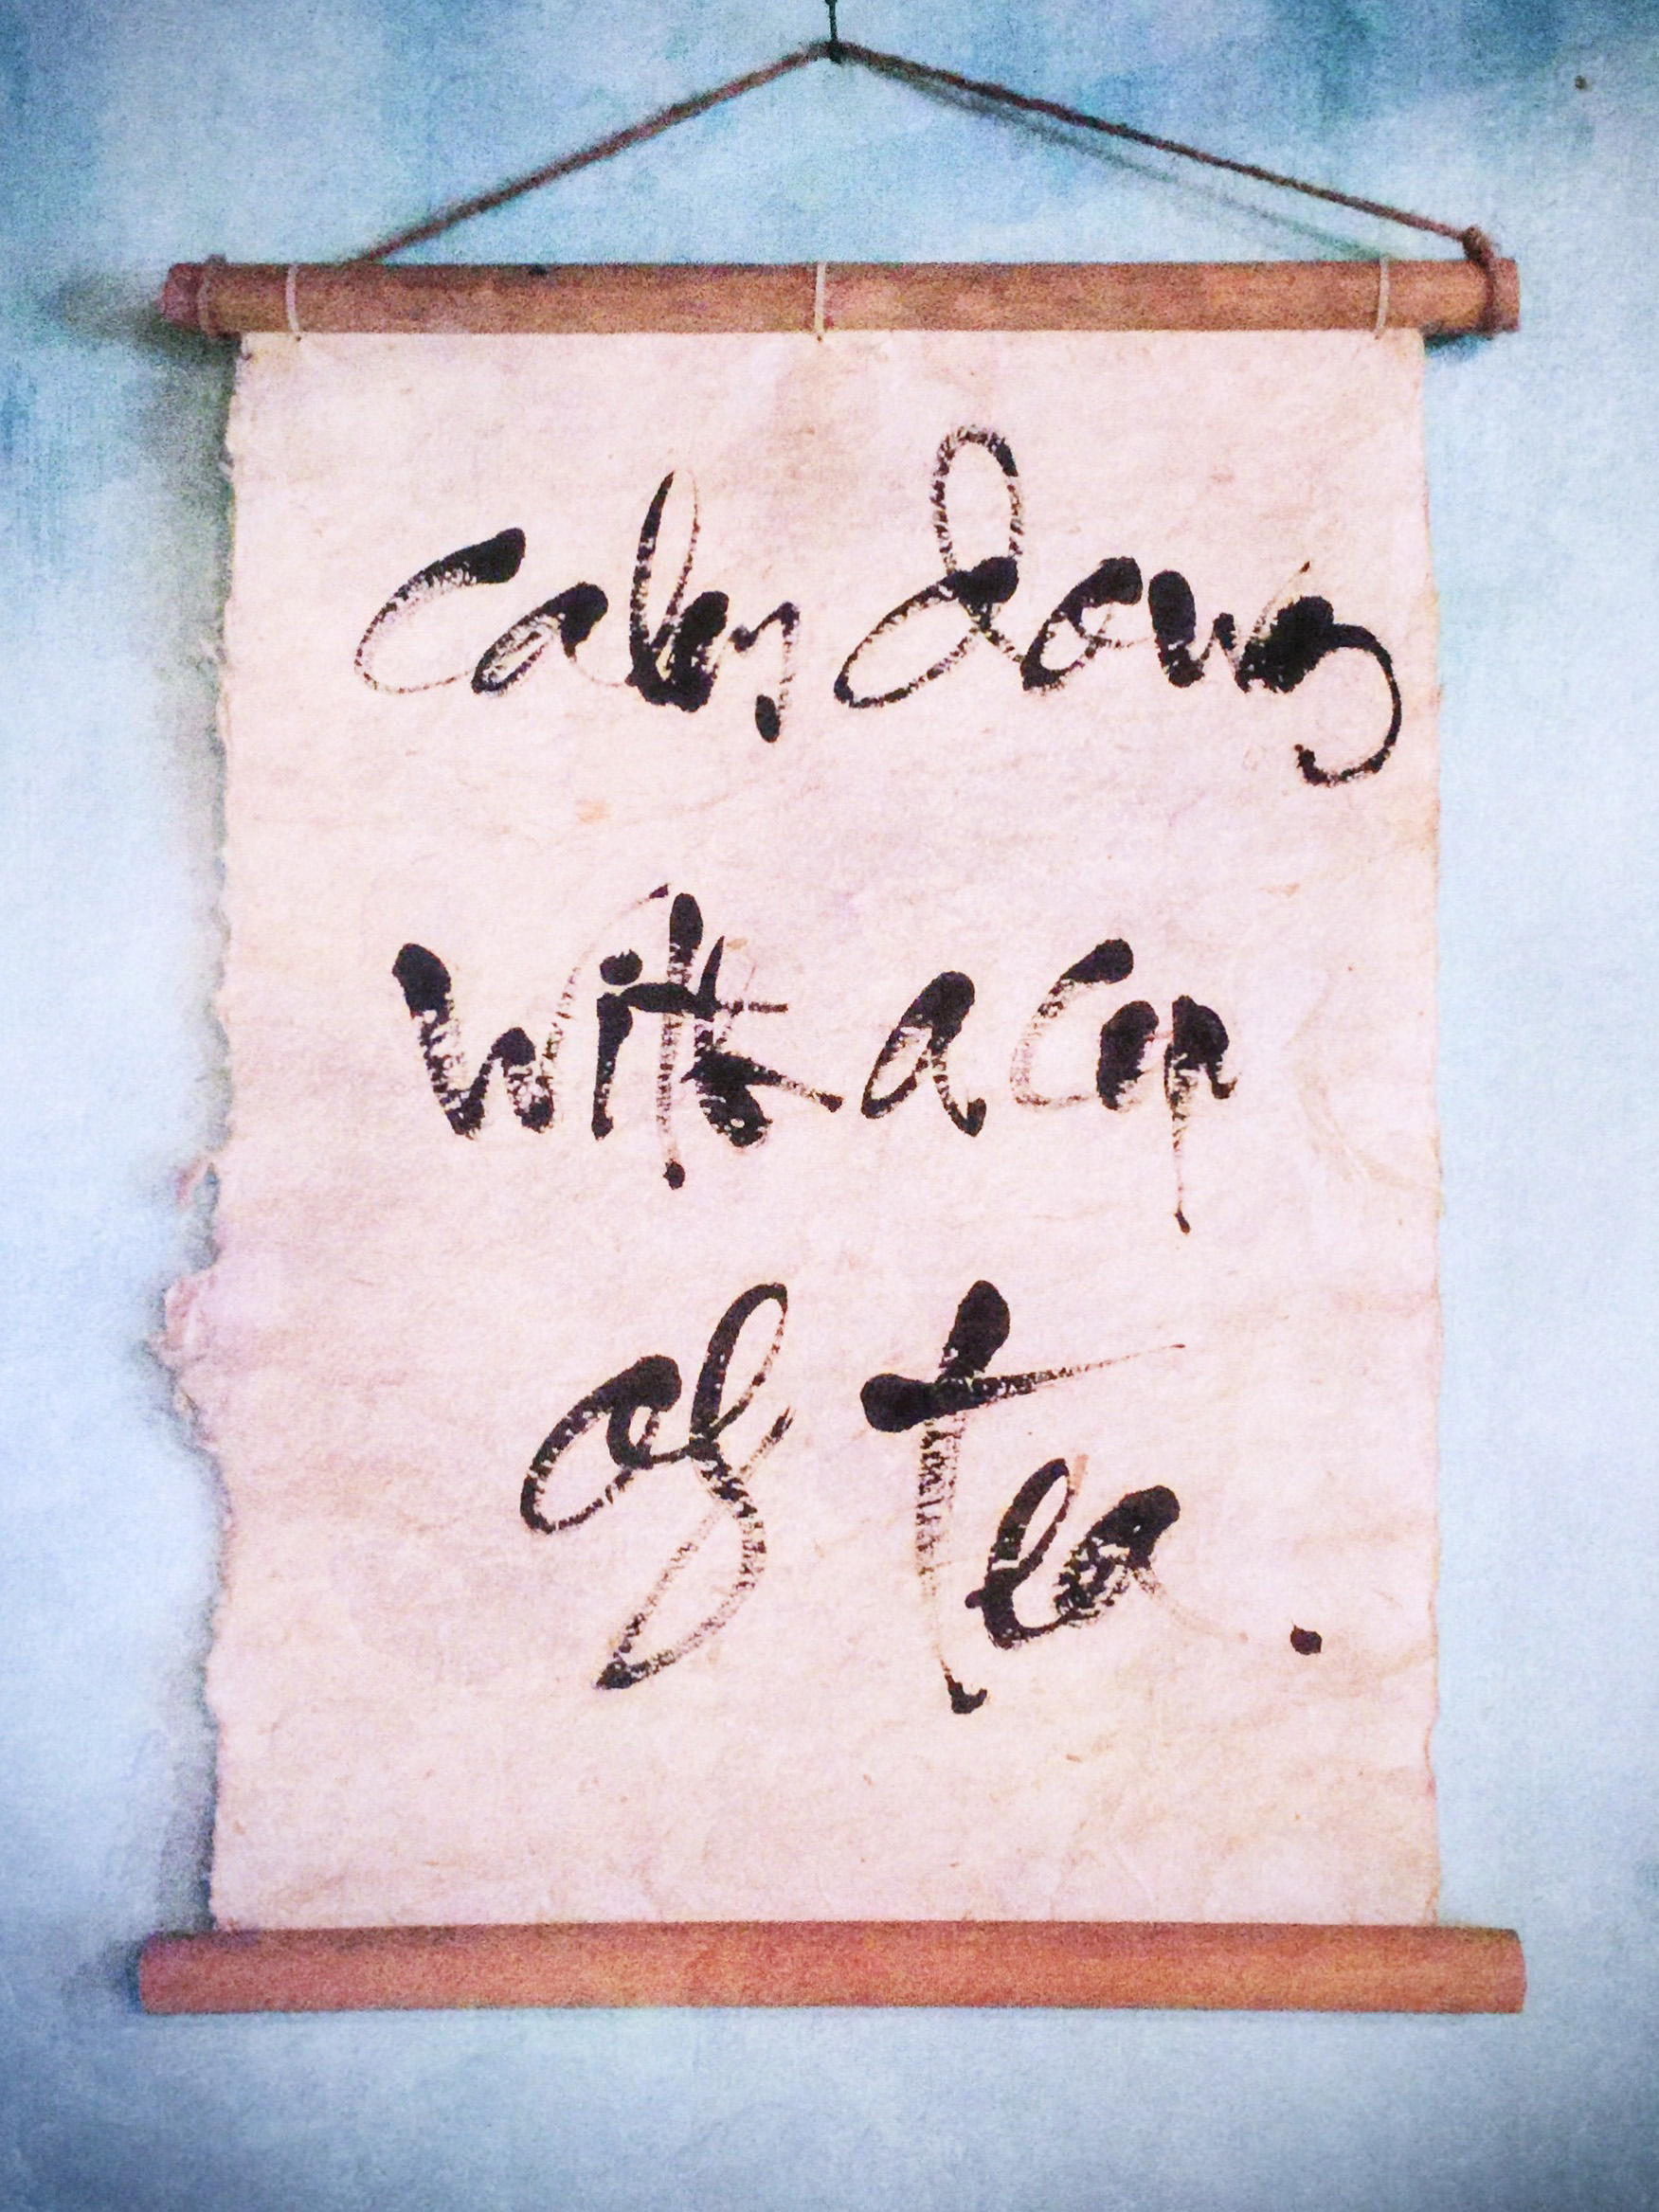 calm down
with a cup
of tea.